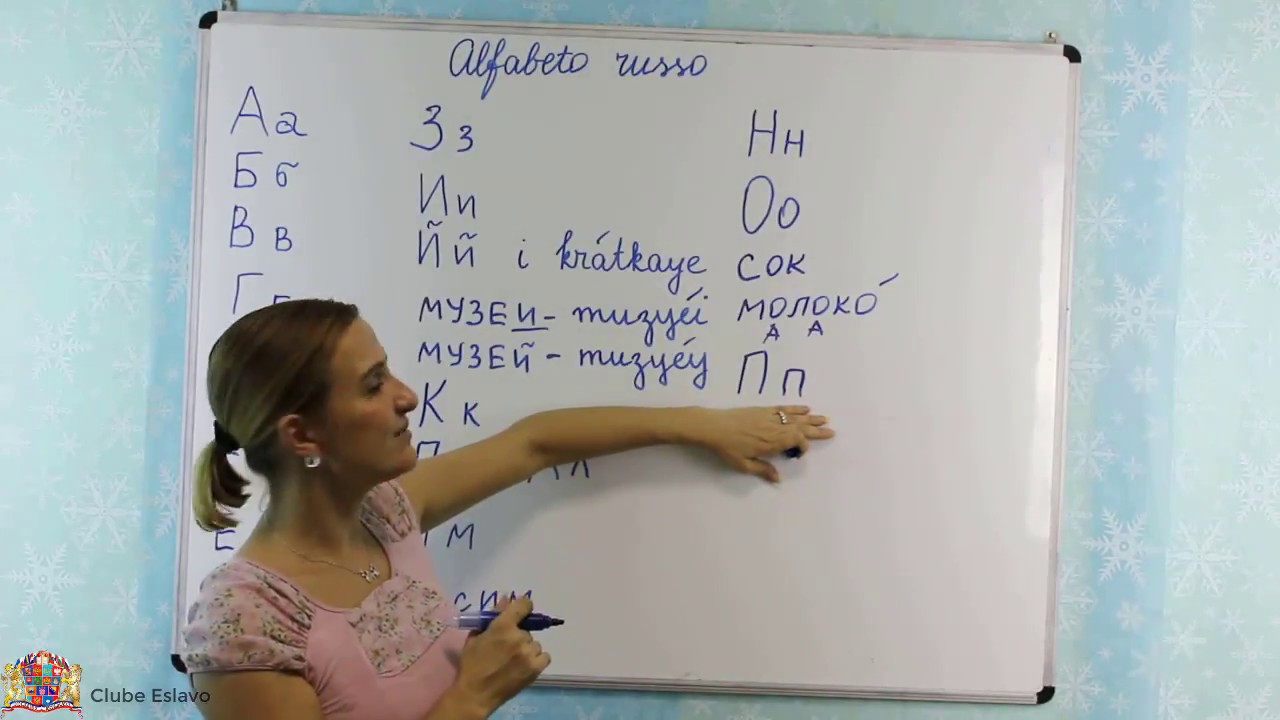 Alfabeto russo
А а
Б б
В в
Г г
Е
З з
И и
Й й i krátkaye
МУЗЕИ - muzyéi
МУЗЕЙ - muzyéy
К к
М
СИМ
Н н
О о
СОК
МОЛОКО́
А А
П п
Clube Eslavo